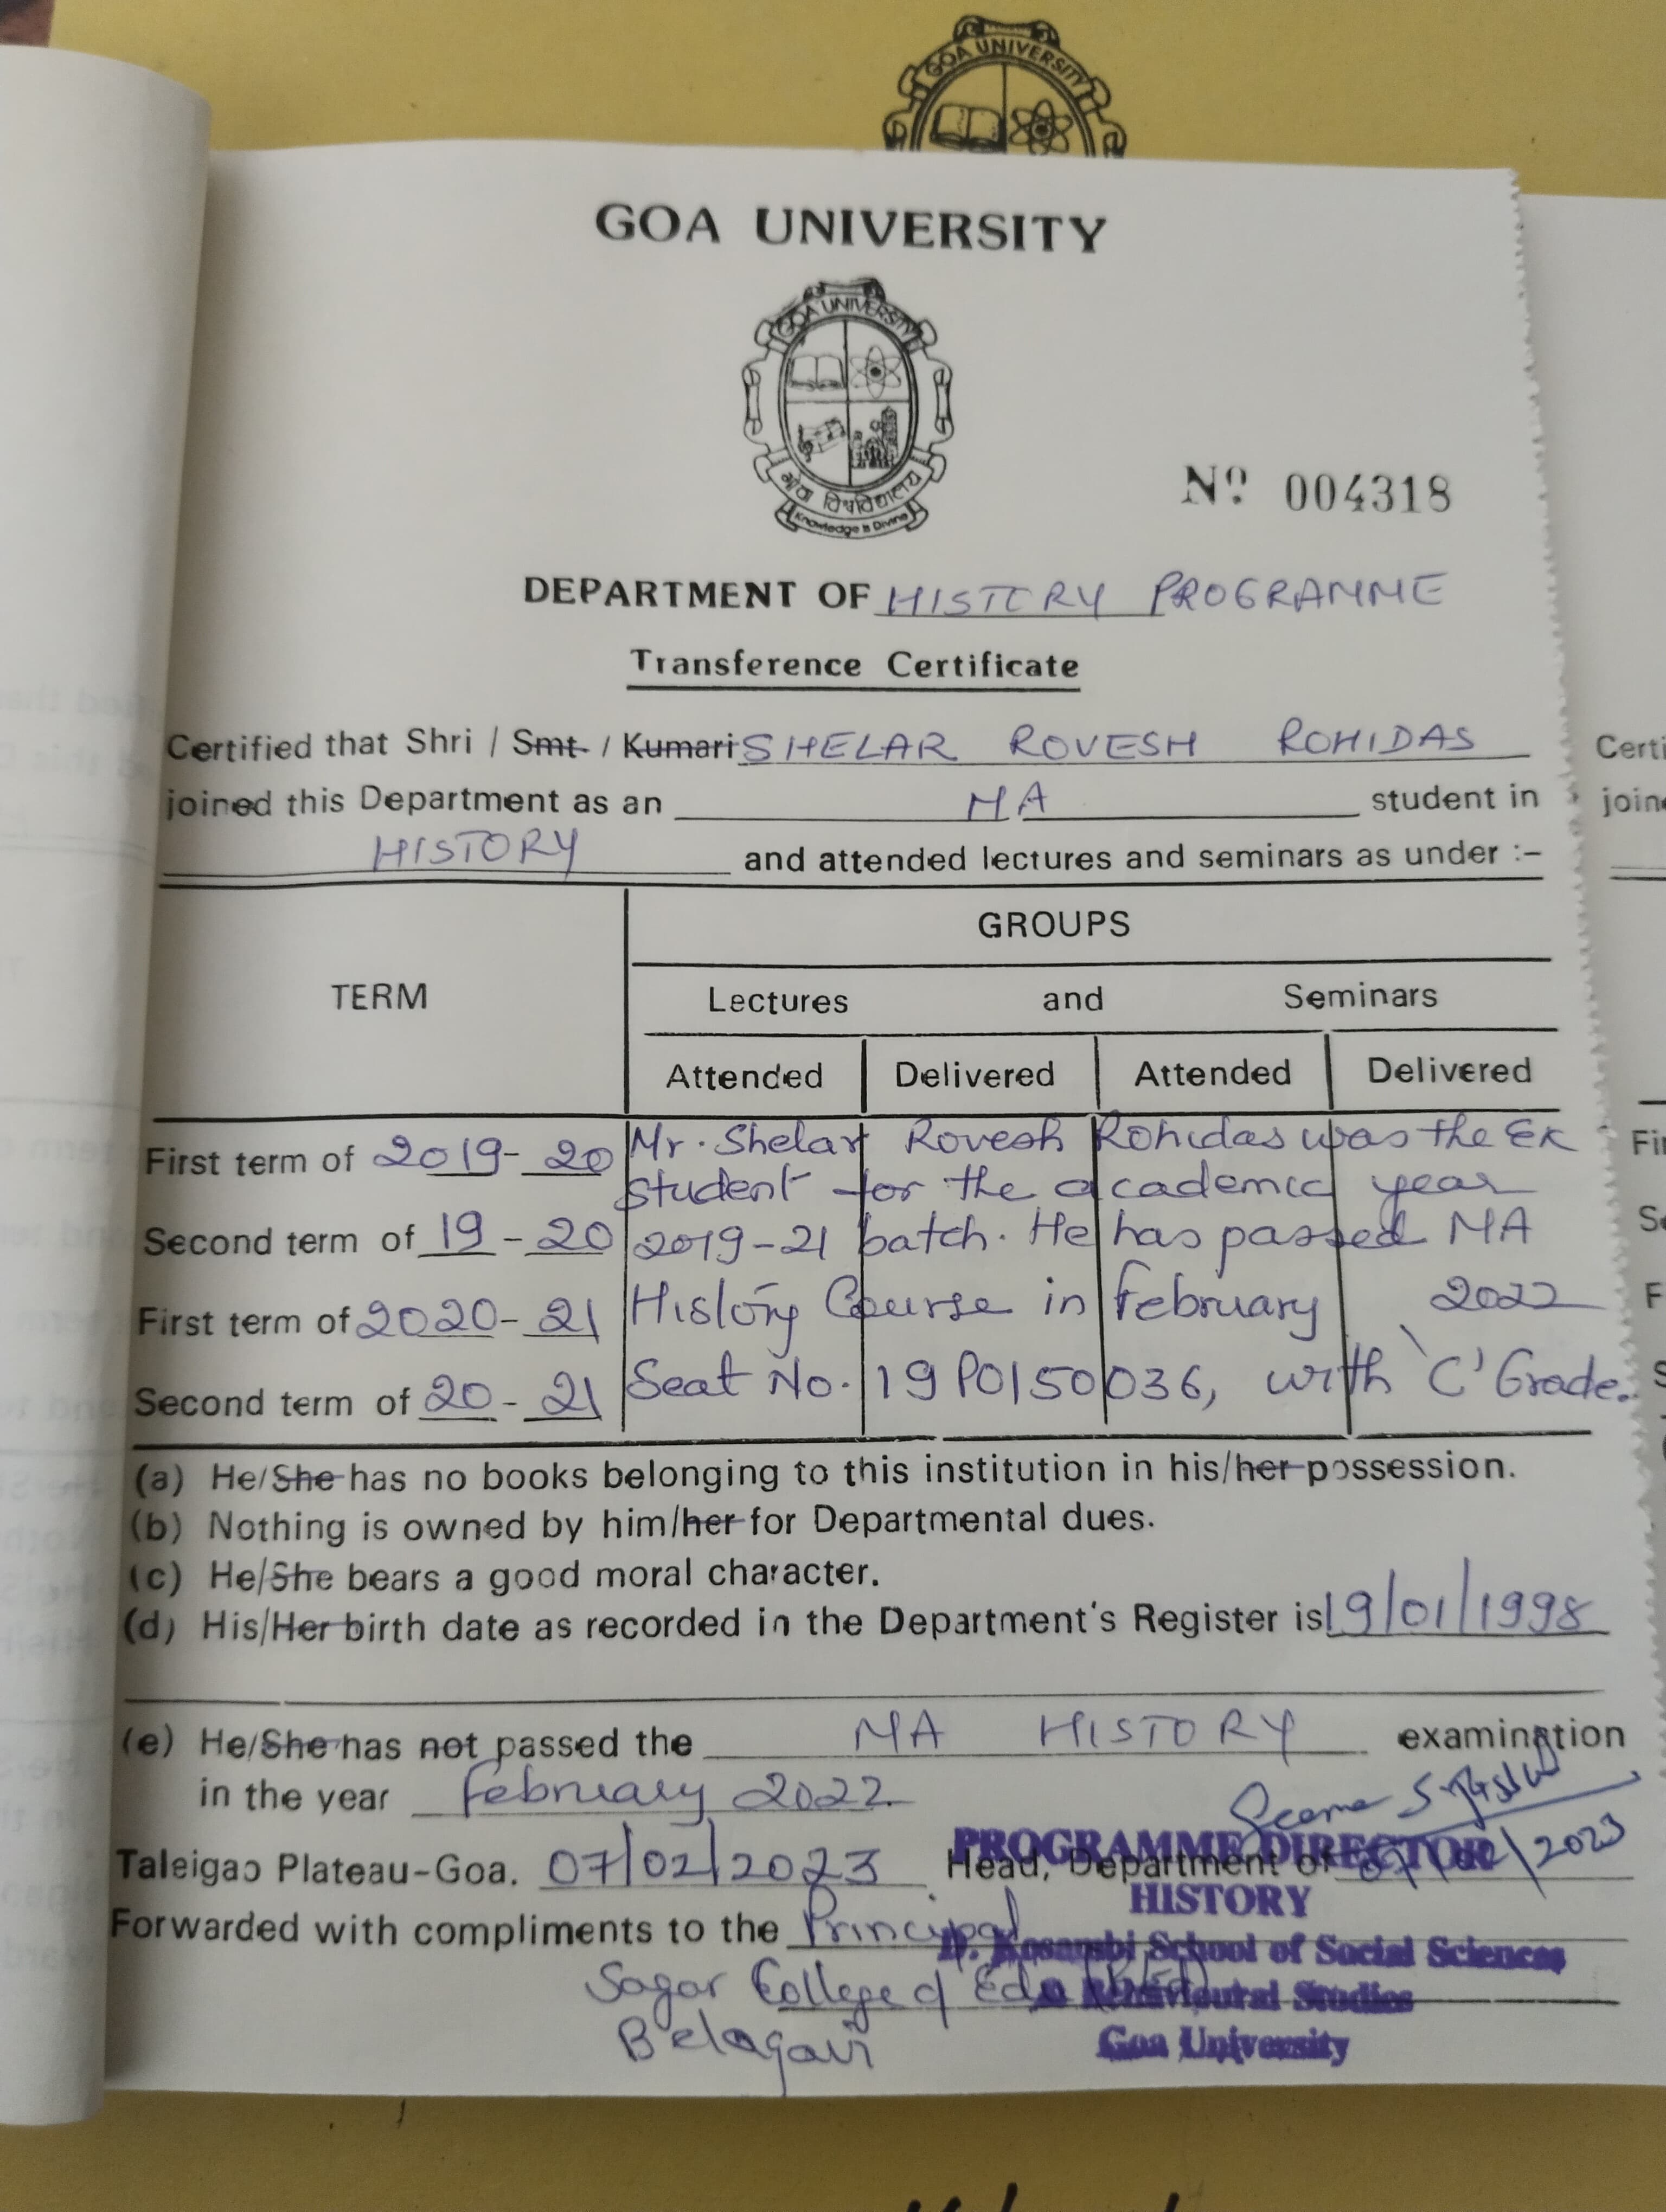 GOA UNIVERSITY
GOA UNIVERSITY
GOA UNIVERSITY
गोंय विश्वविद्यालय
Knowledge is Divine
Nº 004318
DEPARTMENT OF HISTORY PROGRAMME
Transference Certificate
Certified that Shri / Smt. / Kumari SHELAR ROVESH ROHIDAS
joined this Department as an MA student in
HISTORY and attended lectures and seminars as under :-
GROUPS
TERM
Lectures and Seminars
Attended Delivered Attended Delivered
First term of 2019-20 Mr. Shelar Rovesh Rohidas was the Ex
student for the academic year
Second term of 19-20 2019-21 batch. He has passed MA
First term of 2020-21 History Course in February 2022
Second term of 20-21 Seat No. 19P0150036, with 'C' Grade.
(a) He/She has no books belonging to this institution in his/her possession.
(b) Nothing is owned by him/her for Departmental dues.
(c) He/She bears a good moral character.
(d) His/Her birth date as recorded in the Department's Register is 19/01/1998
(e) He/She has not passed the MA HISTORY examination
in the year February 2022
Taleigao Plateau-Goa. 07/02/2023 Head, Department of
PROGRAMME DIRECTOR
07/02/2023
HISTORY
Forwarded with compliments to the Principal
D. Kosambi School of Social Sciences
Sagar College of Edu
& Behavioural Studies
Belagavi
Goa University